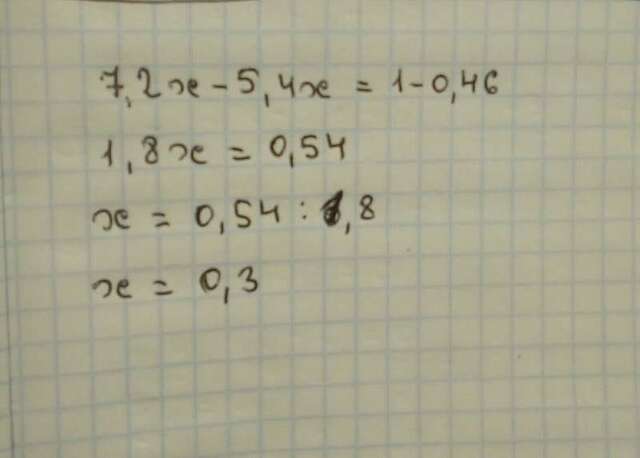 7,2x - 5,4x = 1 - 0,46
1,8x = 0,54
x = 0,54 : 1,8
x = 0,3